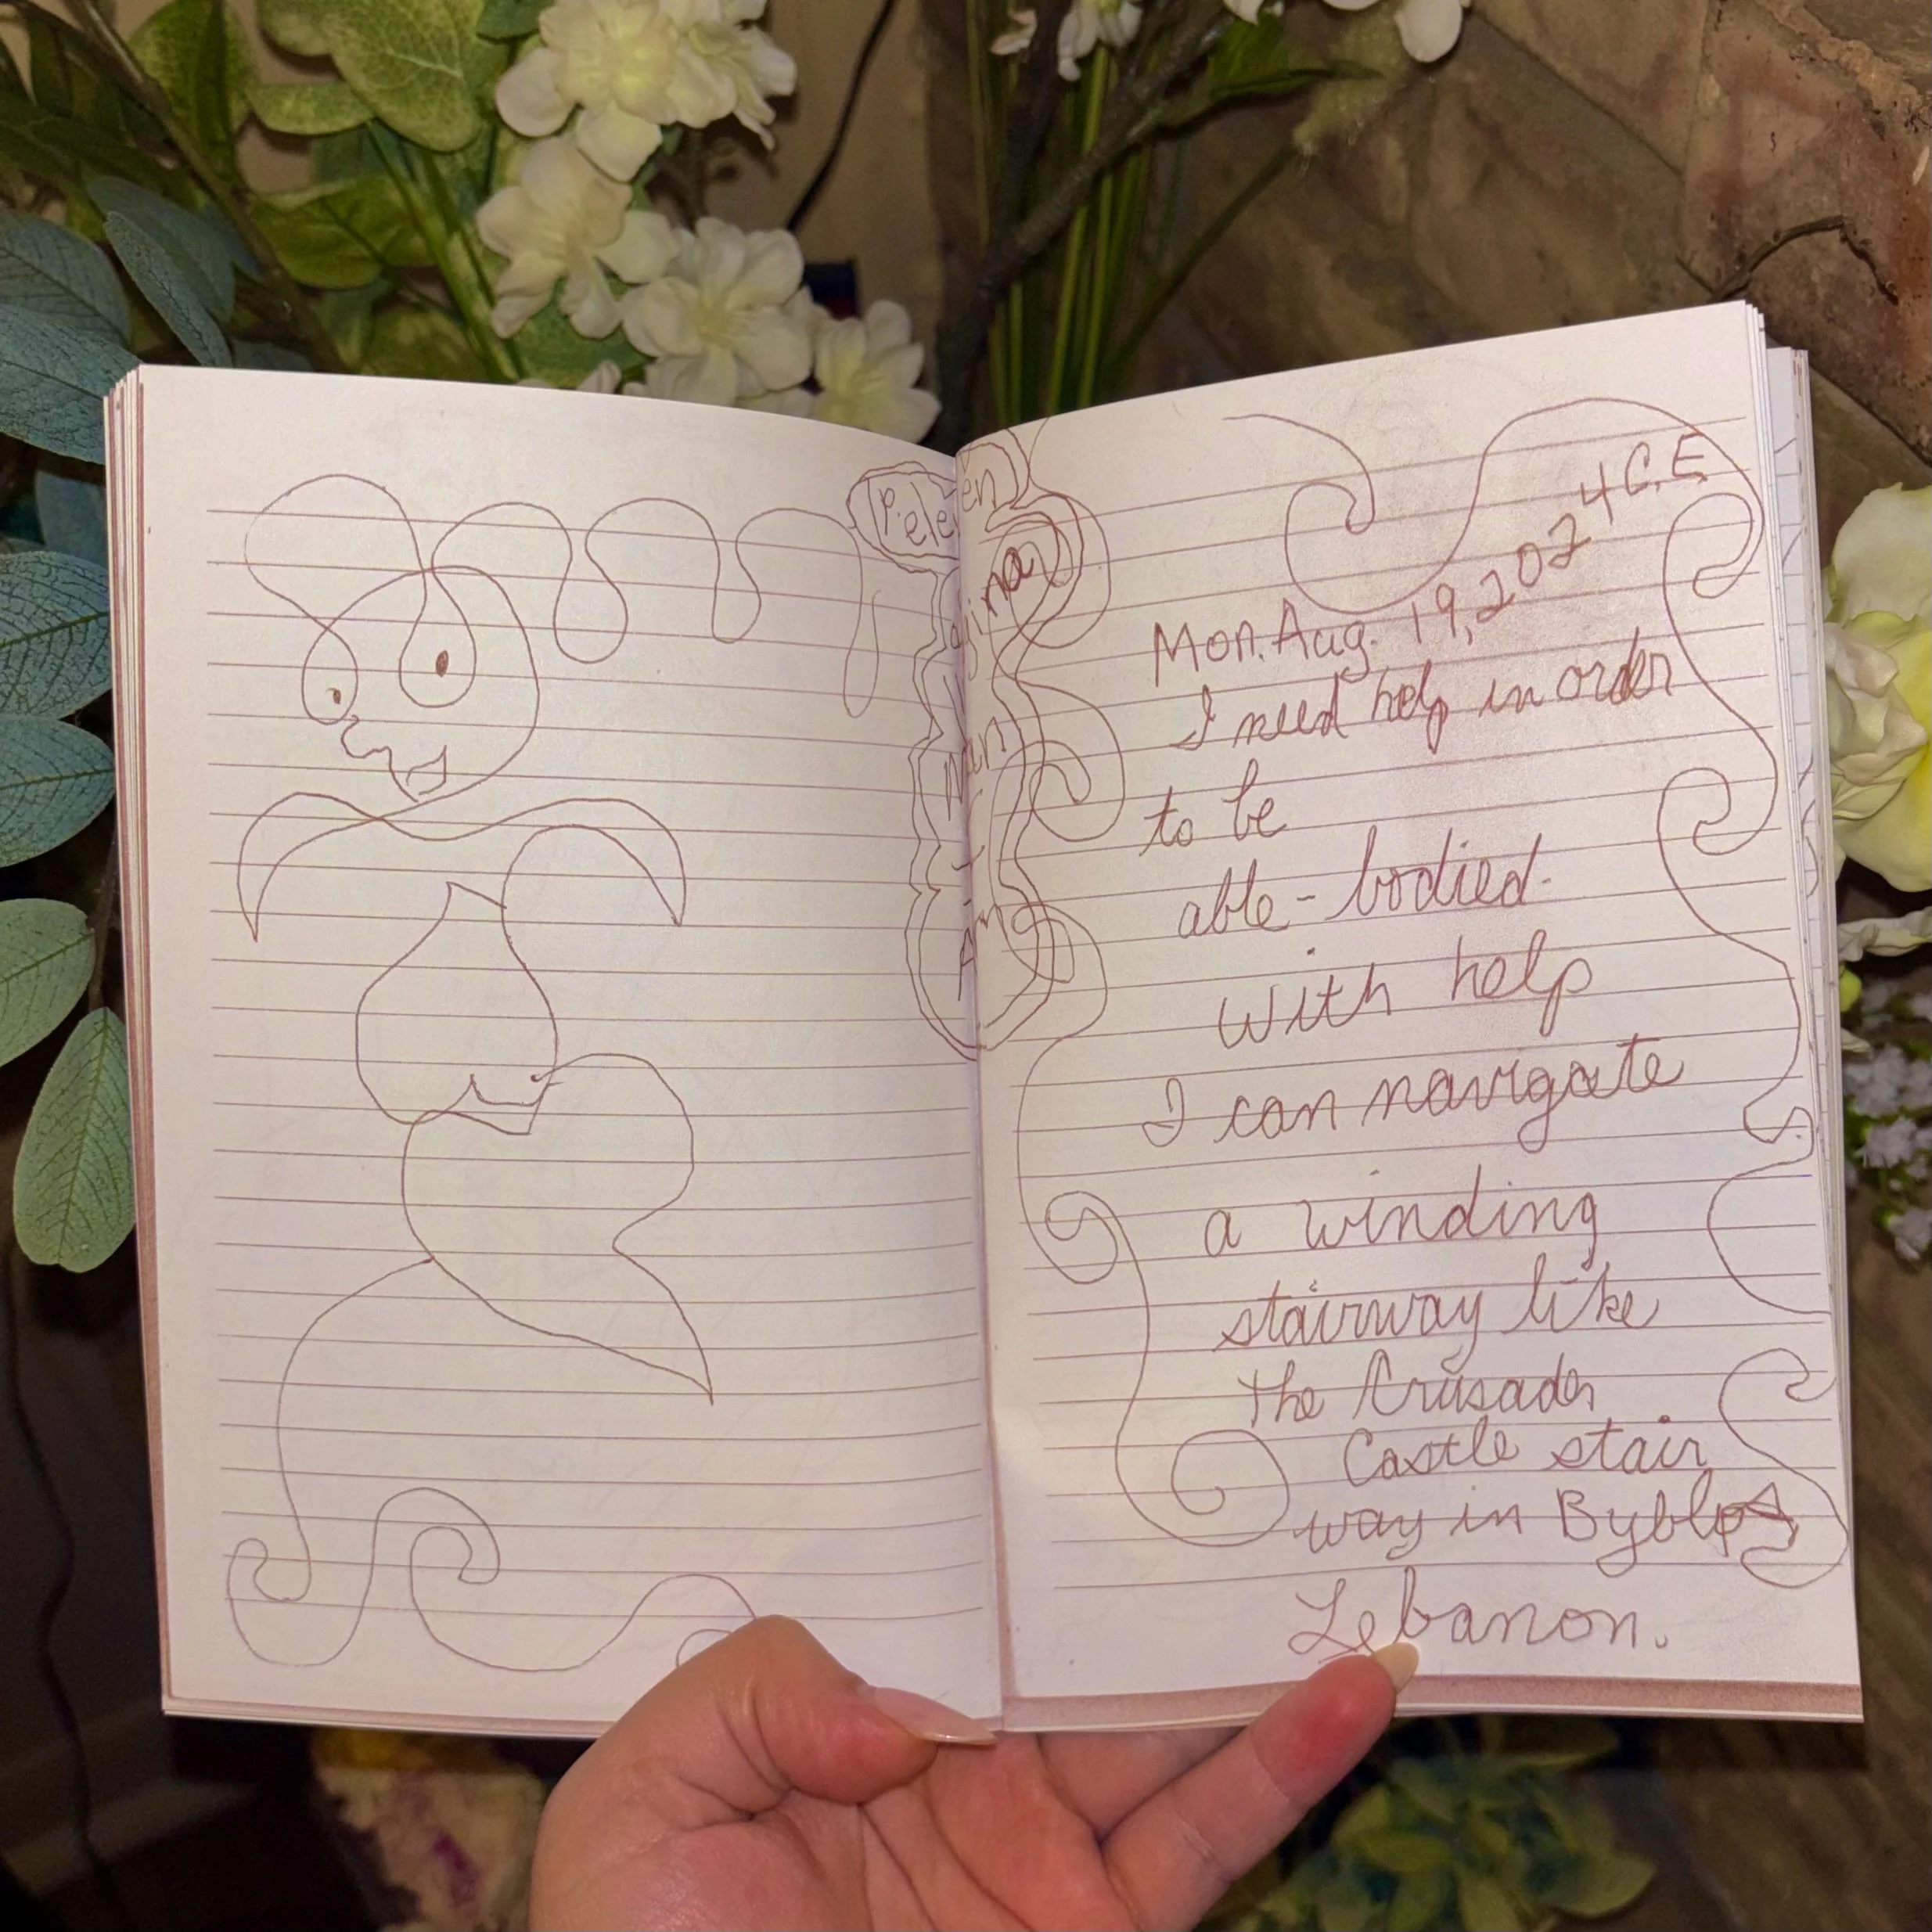 Mon. Aug. 19, 2024 C.E.
I need help in order
to be
able-bodied.
with help
I can navigate
a winding
stairway like
the Crusader
Castle stair
way in Byblos
Lebanon.